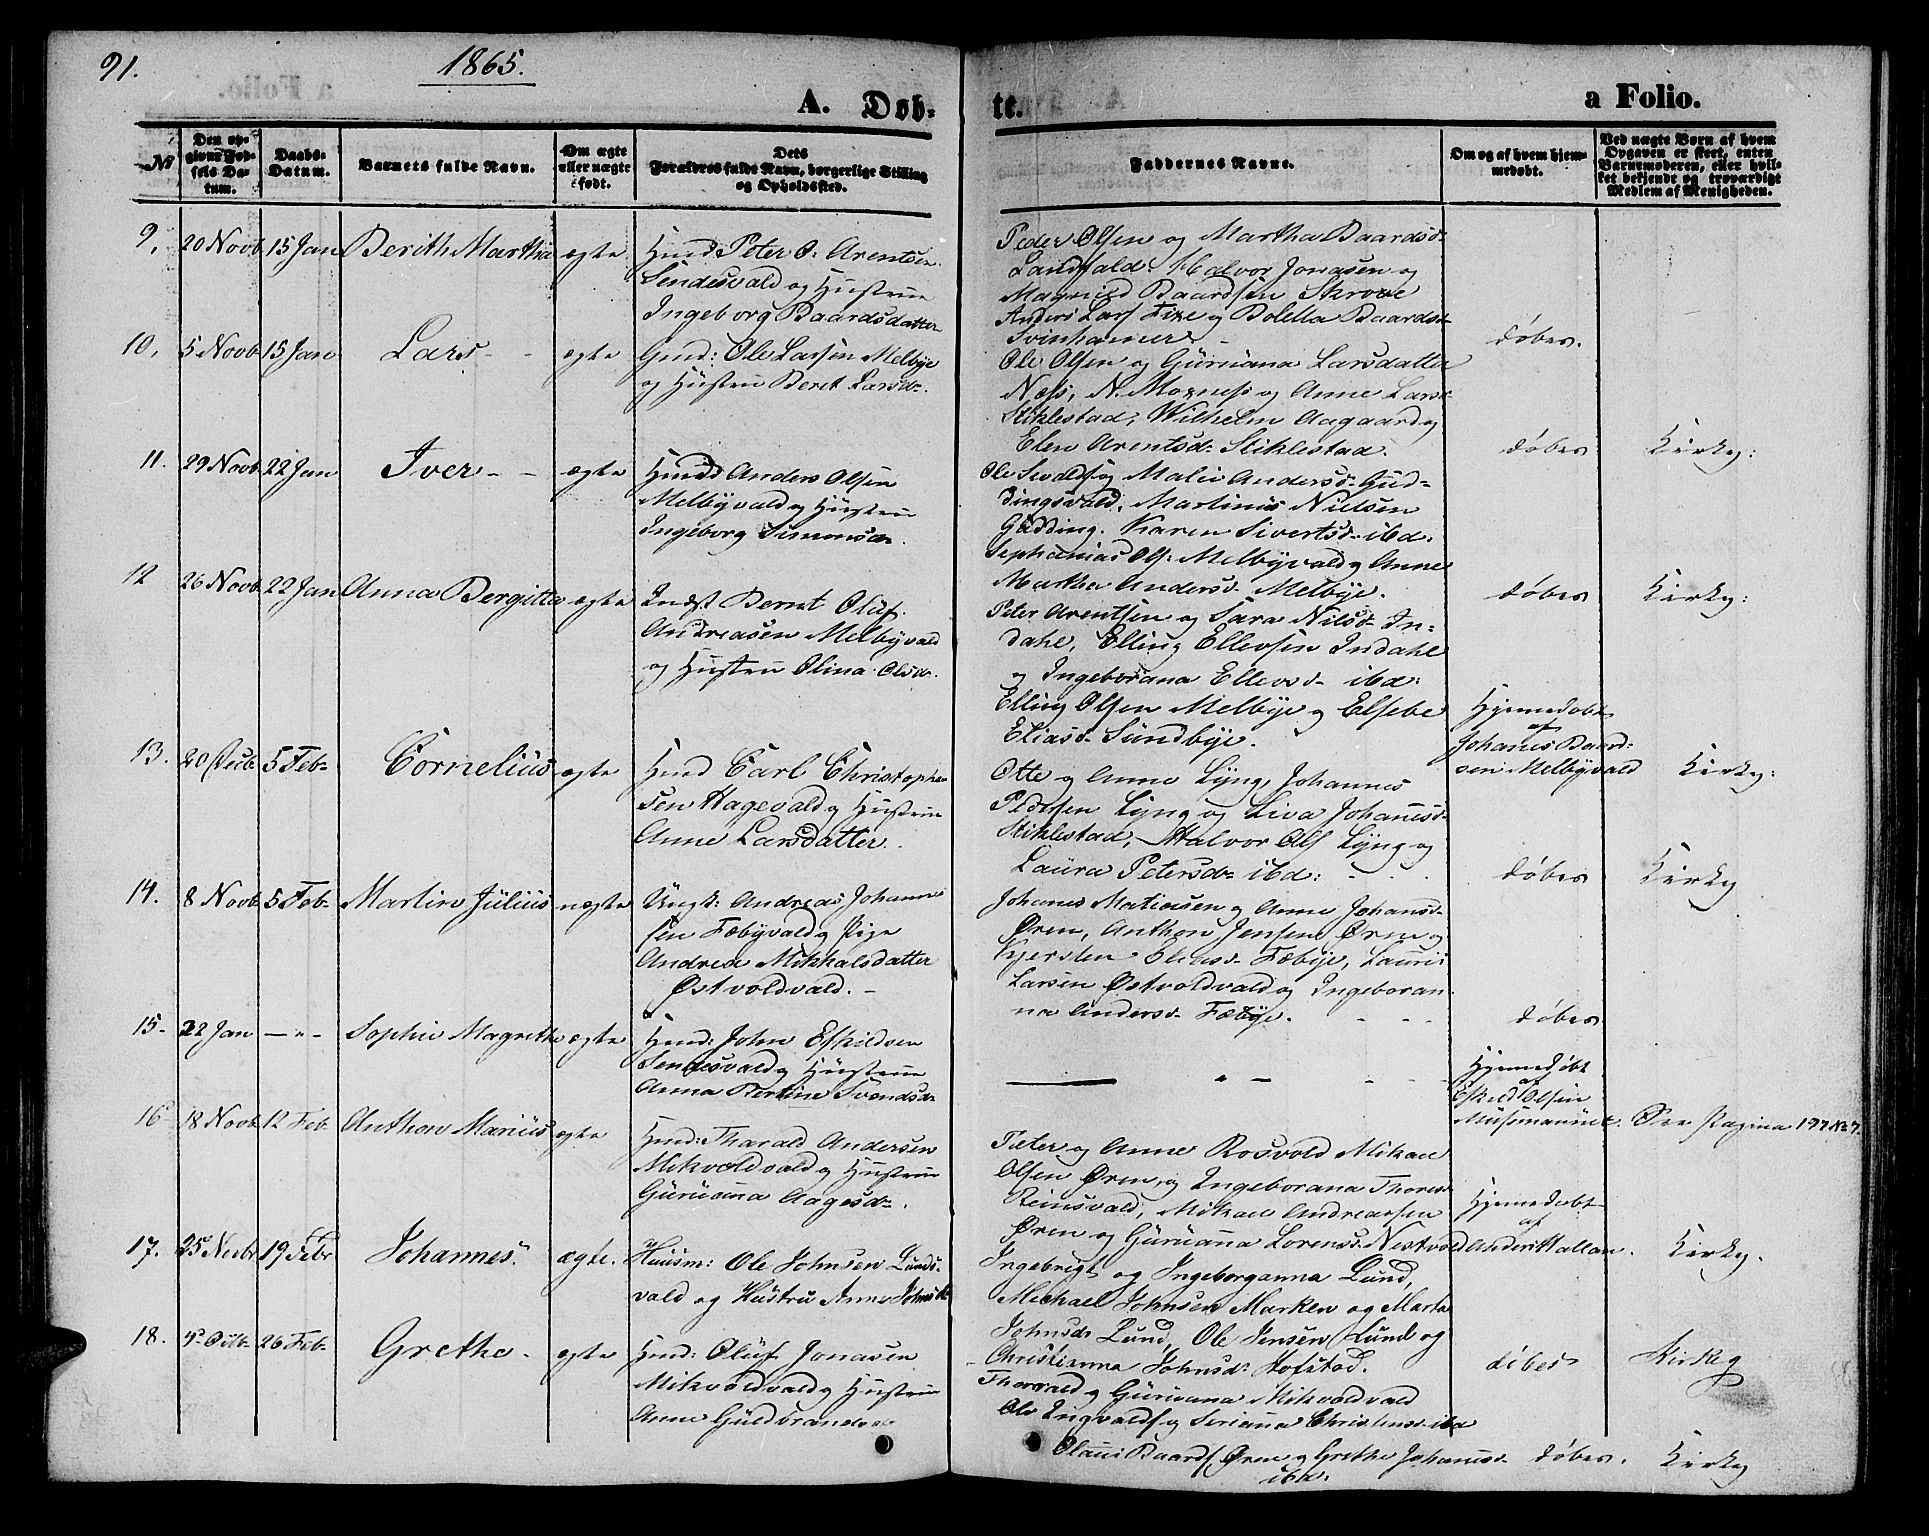 91.
1865.
A. Døb-
te.
a Folio.
No
Den op-
givne Fød-
sels Da-
tum.
Daabs-
Datum.
Barnets fulde Navn.
Om ægte
eller uægte
født.
Dets
Forældres fulde Navn, borgerlige Stilling
og Opholdssted.
Faddernes Navne.
Om og af hvem hjem-
medøbt.
Ved uægte Børn af hvem
Opgaven er skeet, enten
Barnemoderen, eller hvil-
ket bekjendt og troværdigt
Medlem af Menigheden.
9. 20 Novb. 15 Jan Berith Martha ægte
Hmd Peter O: Arentsen
Lendesvald og Hustrue
Ingeborg Baardsdatter
Peder Olsen og Martha Baardsd-
Landfald. Halvor Jonasen og
Magnild Baardsen Skrove
Anders Lars Fixe og Boletta Baardsd-
Svinhamer -
døbes.
10. 5 Novb. 15 Jan Lars - - ægte
Gmd: Ole Larsen Melbye
og Hustru Beret Larsd-.
Ole Olsen og Guruana Larsdatter
Næss, N. Moxness og Anne Larsd-
Stiklestad, Wilhelm Aagaard og
Elen Arentsd- Stiklestad.
døbes Kirky:
11. 29 Novb. 22 Jan Iver - - ægte
Hmd Anders Olsen
Melbyvald og Hustrue
Ingeborg Simonsd-.
Ole og Malie Andersd- Gud-
dingsvald, Martinus Nielsen
Gudding. Karen Sivertsd- ibd.
Sephanias Ols: Melbyvald og Anne
Martha Andersd- Melbye.
døbes Kirky:
12 26 Novb. 22 Jan Anna Bergitta ægte
Indst Bernt Oluf
Andreasen Melbyvald
og Hustru Olina Olsd-.
Peter Arentsen og Sara Nilsd- In-
dahl, Elling Ellevsen Indahl
og Ingeborana Ellevsd- ibd:
Elling Olsen Melbye og Elsebe
Eliasd- Sundbye.
Hjemedøbt
af
Johanes Baard-
sen Melbyvald
Kirky:
13. 20 Decb. 5 Feb- Cornelius ægte
Hmd Carl Christopher
sen Hagevald og Hustrue
Anne Larsdatter.
Otte og Anne Lyng, Johannes
Pedersen Lyng og Liva Johanesd-
Stiklestad, Halvor Ols Lyng og
Laura Petersd- ibd:
døbes Kirky
14. 8 Novb. 5 Feb- Martin Julius uægte
Ungk: Andreas Johanne
sen Fæbyvald og Pige
Andrea Mikkalsdatter
Østvoldvald. -
Johanes Matiasen og Anne Johansd-
Øren, Anthon Jensen Øren og
Kjersten Eliasd- Fæbye, Lauris
Larsen Østvoldvald og Ingeboran-
na Andersd- Fæbye.
døbes
15- 22 Jan - " - Sophie Magrethe ægte
Hmd: John Eskildsen
Sendesvald og Hustrue
Anna Bertine Svendsd-
- " -
Hjemedøbt
af
Eskild Olsen
Musumannet.
See Pagina 197 No 7.
16 18 Novb. 12 Feb Anthon Marius ægte
Hmd: Tharald Andersen
Mikvoldvald og Hustrue
Guruanna Aagesd-.
Peter og Anne Rosvold Mikael
Olsen Øren, og Ingeborana Thoresd-
Reinsvald, Mikael Andreassen
Øren og Guruanna Lorensd- Nestvold
Hjemedøbt
af
Anders Hallan.
Kirky.
17. 25 Novbr 19 Febr Johannes. ægte.
Huusm: Ole Johnsen Lunds-
vald og Hustru Anne Johnsd
Ingebrigt og Ingeborganna Lund,
Michael Johnsen Marken og Marta
Johnsd- Lund, Ole Jensen Lund og
Christianna Johnsd- Hofstad.
døbes Kirkeg
18. 26 Feb- Grethe - ægte
Hmd: Oluf Jonasen
Mikvoldvald og Hustrue
Anne Guldbrandsd
Tharald og Guruanna Mikvoldvald
Ole Ingvalds og Seriana Christensd- ibd
Olaus Baards Øren og Grethe Johanesd-
ibd.
døbes. Kirky